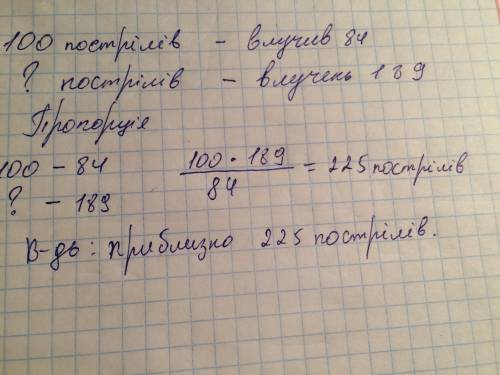 100 пострілів - влучив 84
? пострілів - влучень 189
Пропорція
100 - 84
? - 189
100 • 189 / 84 = 225 пострілів
В-дь: приблизно 225 пострілів.